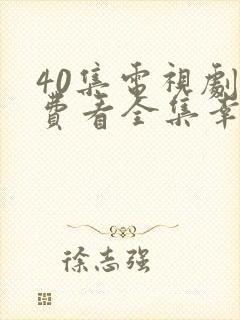 40集電視劇
費看全集率
徐志强